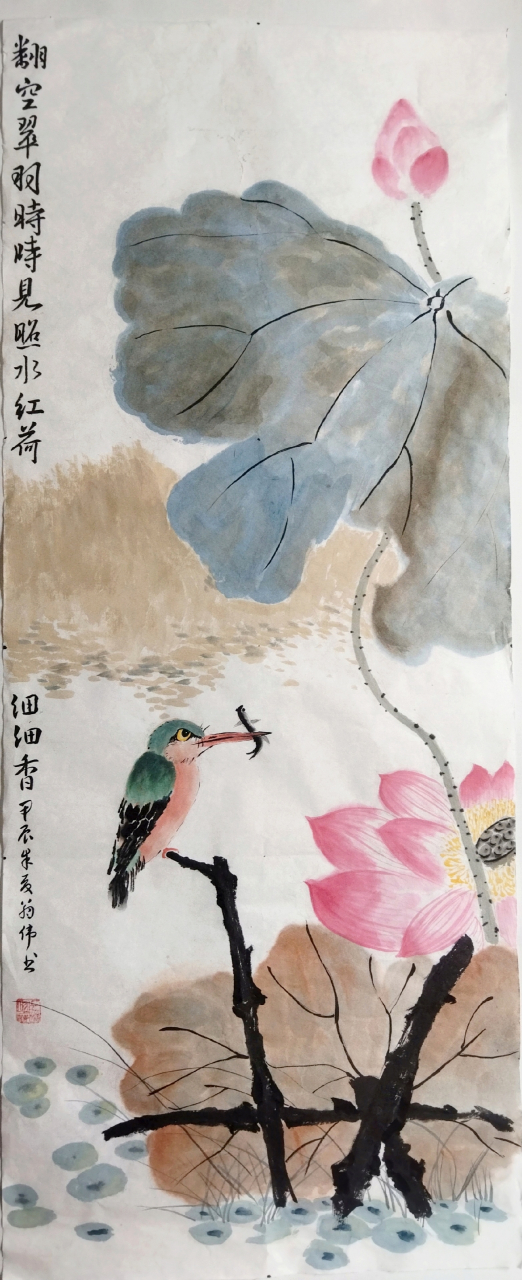 翻空翠羽時時見照水红荷
细细香甲辰朱夏翁伟书